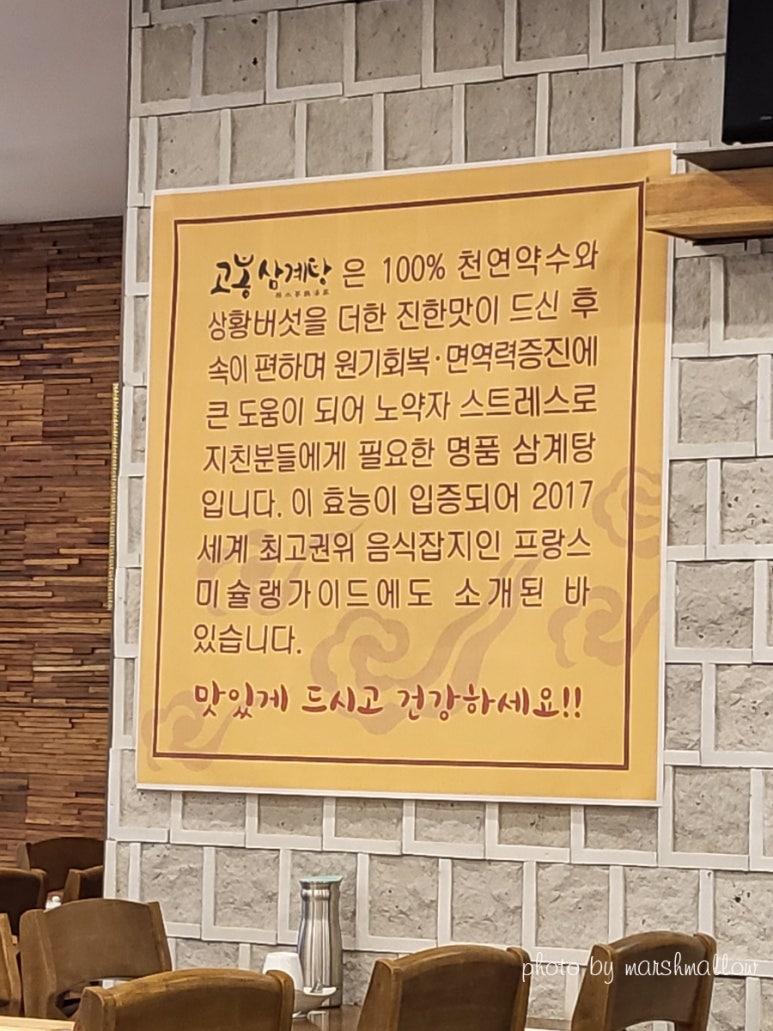 고봉삼계탕 은 100% 천연약수와
상황버섯을 더한 진한맛이 드신 후
속이 편하며 원기회복·면역력증진에
큰 도움이 되어 노약자 스트레스로
지친분들에게 필요한 명품 삼계탕
입니다. 이 효능이 입증되어 2017
세계 최고권위 음식잡지인 프랑스
미슐랭가이드에도 소개된 바
있습니다.
맛있게 드시고 건강하세요!!
photo by marshmallow